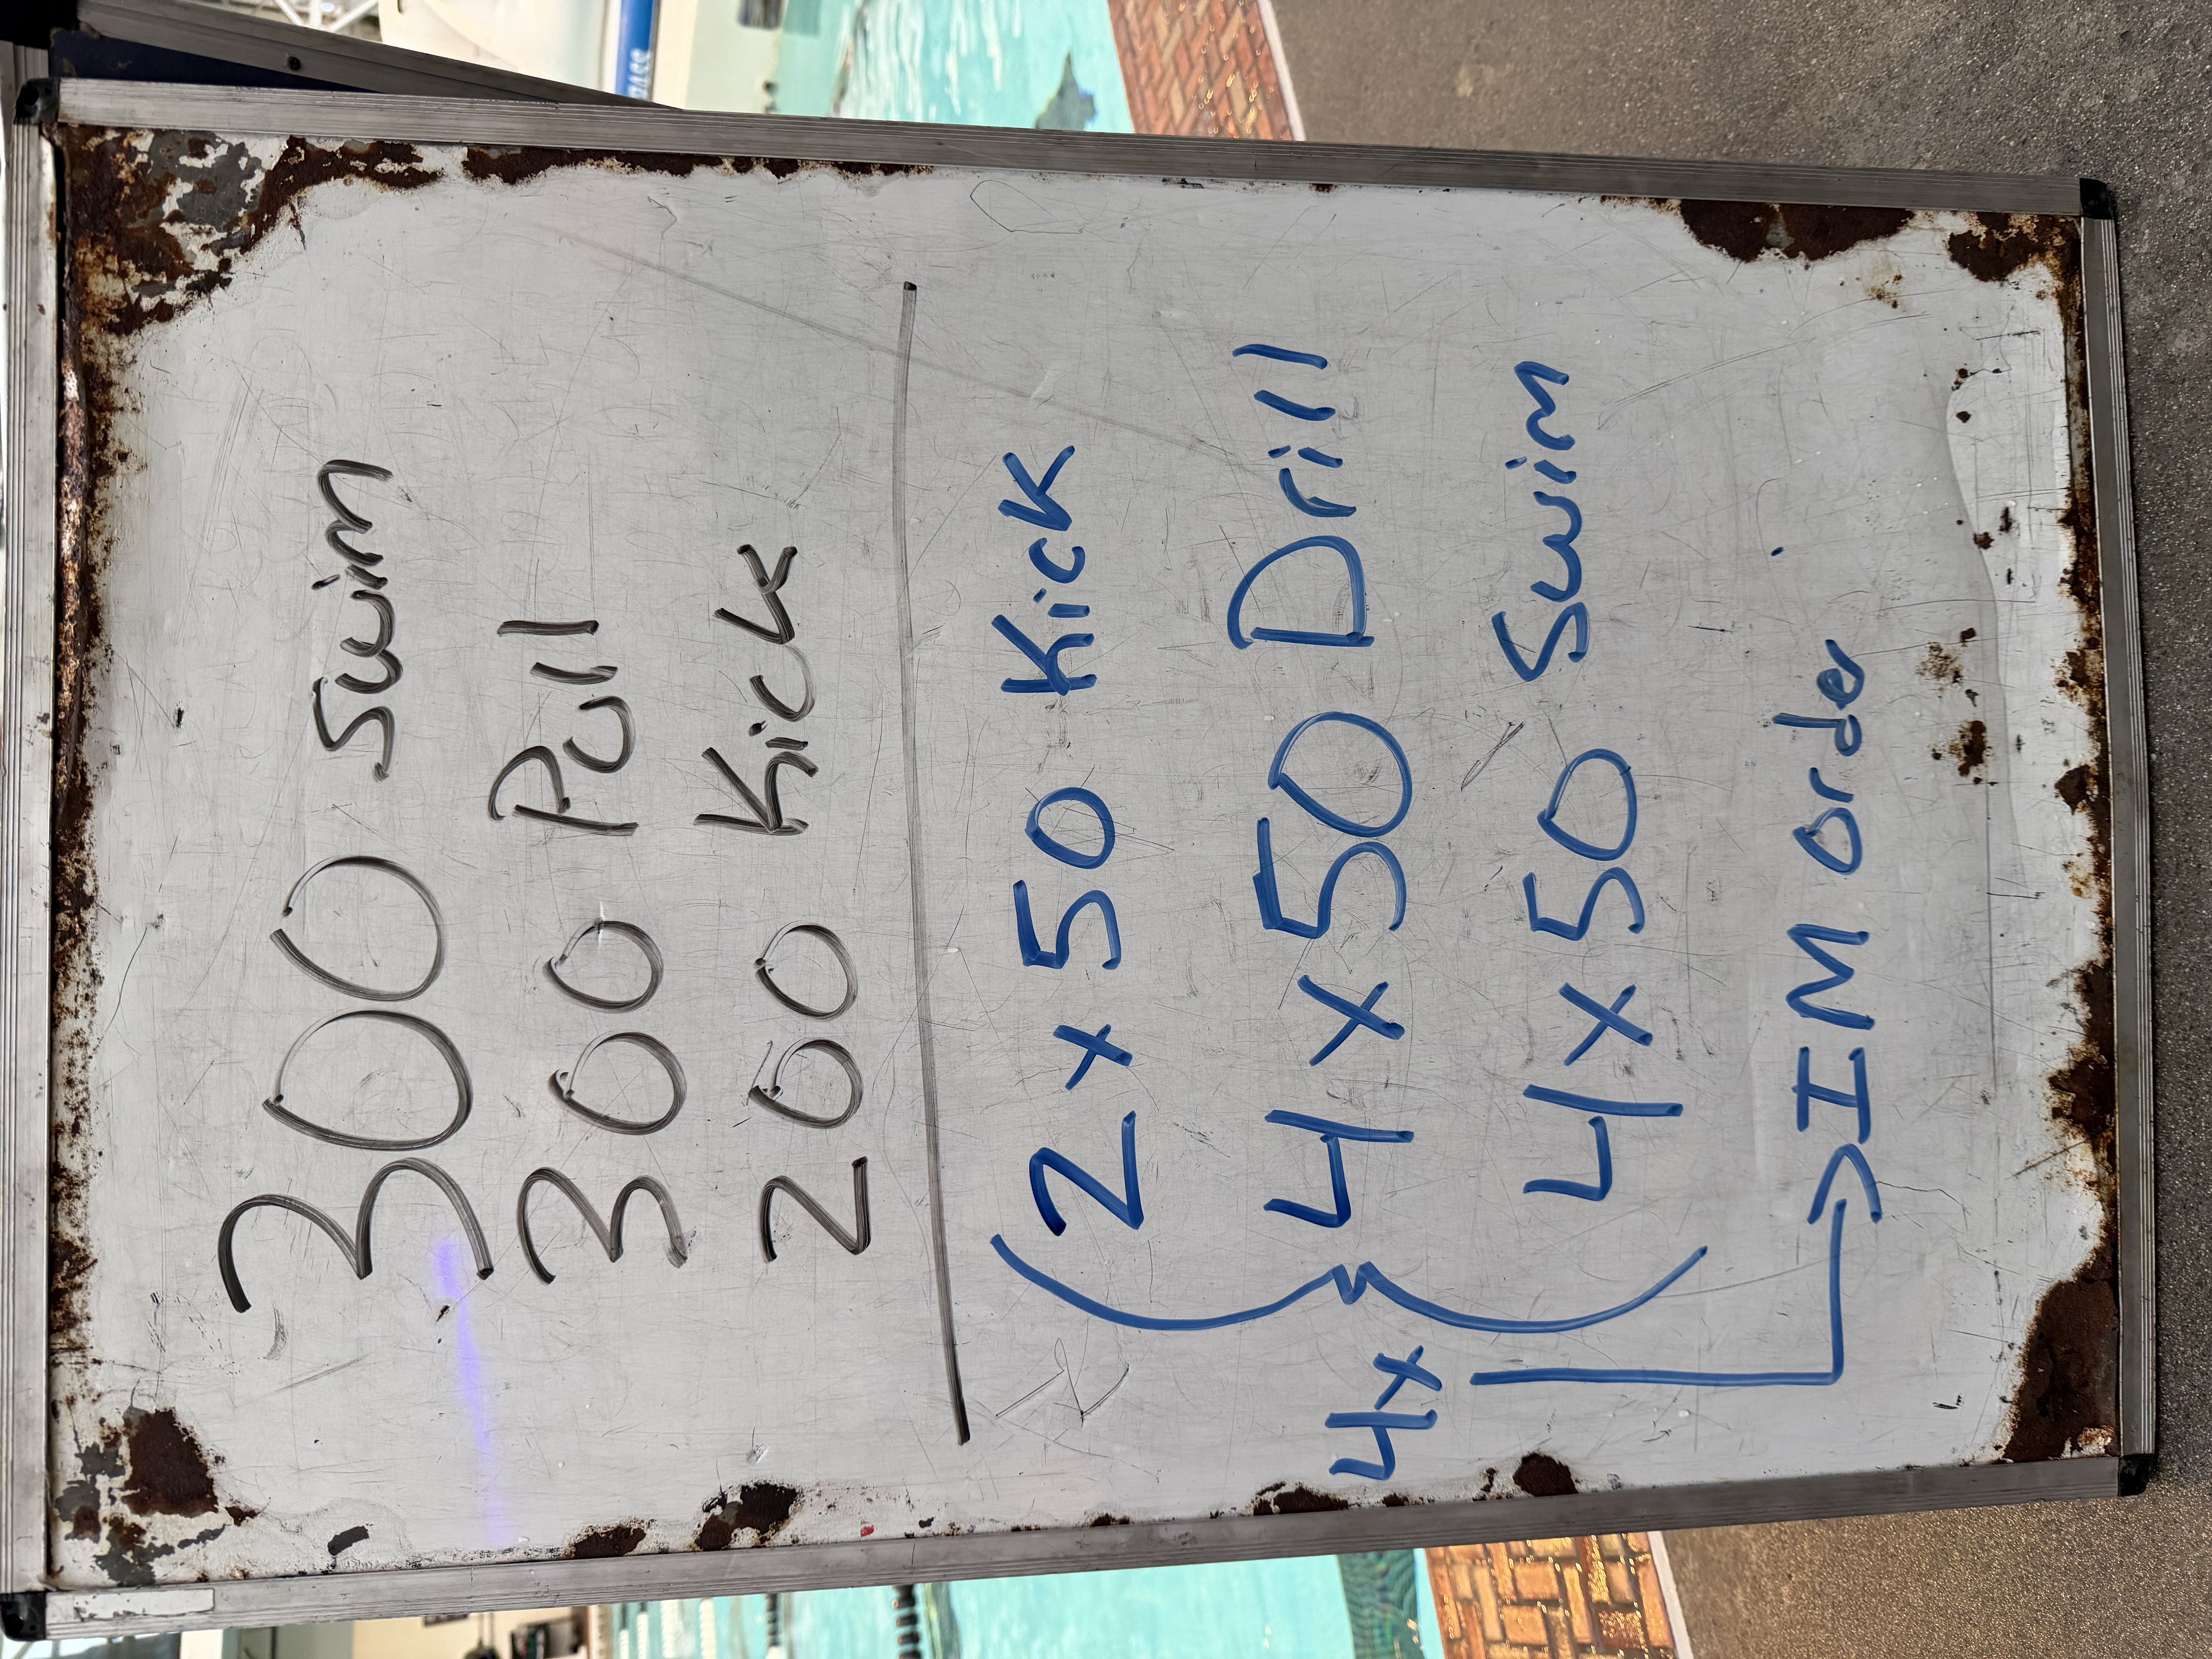 300 Swim
300 Pull
200 Kick
2 x 50 Kick
4 x 50 Drill
4x
4 x 50 Swim
IM order